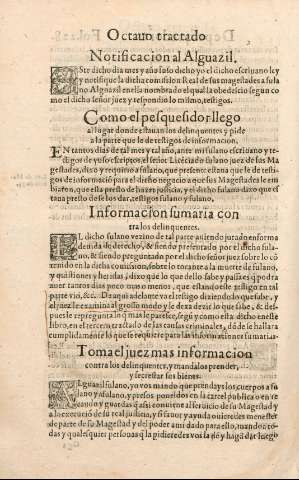 Octauo tractado
Notificacion al Alguazil.
ESte dicho dia mes y año suso dicho yo el dicho escriuano ley
y notifique la dicha comission Real de sus magestades a fula
no Alguazil en ella nombrado el qual la obedescio segun co
mo el dicho señor juez y respondio lo mismo, testigos.
Como el pesquesidor llego
al lugar donde estauan los delinquentes y pide
a la parte que le de testigos de informacion.
EN tantos dias de tal mes y tal año, ante mi fulano escriuano y tes-
tigos de yuso escriptos, el señor Licẽciado fulano juez de sus Ma
gestades, dixo y requirio a fulano, que presente estaua que le de testi-
gos de informaciõ para el dicho negocio a que sus Magestades le em
biaron, que esta presto de hazer justicia, y el dicho fulano dixo que es
taua presto de se los dar, testigos fulano y fulano.
Informacion sumaria con
tra los delinquentes.
EL dicho fulano vezino de tal parte auiendo jurado en forma
deuida de derecho, & siendo presentado por el dicho fula-
no, & siendo preguntado por el dicho señor juez sobre lo cõ
tenido en la dicha comission, sobre lo tocante a la muerte de fulano,
y quistiones y heridas, dixo que lo que dello sabe y passa es que podra
auer tantos dias poco mas o menos, que estando este testigo en tal
parte vio, &c. De aqui adelante va el testigo diziendo lo que sabe, y
el juez le examina al grosso modo y le dexa dezir lo que sabe, & des-
pues le repregunta lo que mas le paresce, segũ y como esta dicho en este
libro, en el tercero tractado de las causas criminales, dõde se hallara
cumplidamẽte lo que se requiere para en este caso
Toma el juez mas informacion
contra los delinquentes, y mandalos prender,
y secrestar sus bienes.
ALguazil fulano, yo vos mando que prendays los cuerpos a fu
lano y a fulano, y presos poneldos en la carcel publica o en re
caudo y guardas que assi conuiene al seruicio de su Magestad y
a la execuciõ de su real justicia, y si fauor y ayuda ouieredes menester
de parte de su Magestad y del poder a mi dado para ello, mando a to
das y qualesquier personas que la pidieredes vos la dẽ y hagã dar luego